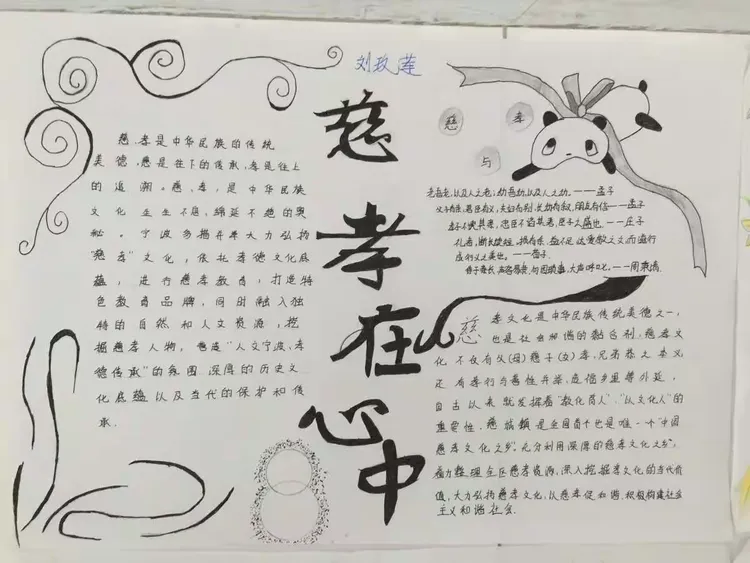 刘玫莲
慈孝在心中
慈、孝是中华民族的传统
美德,慈是往下的传承,孝是往上
的追溯。慈、孝,是中华民族
文化生生不息、绵延不绝的奥
秘。宁波多措并举大力弘扬
"慈孝"文化,依托孝德文化底
蕴,进行慈孝教育,打造特
色教育品牌,同时融入独
特的自然和人文资源,挖
掘慈孝人物,营造"人文宁波、孝
德传承"的氛围 深厚的历史文
化底蕴以及当代的保护和传
承.
慈
与
孝
老吾老,以及人之老;幼吾幼,以及人之幼。——孟子
父子有亲,君臣有义,夫妇有别,长幼有叙,朋友有信——孟子
孝子不谀其亲,忠臣不谄其君,臣子之盛也——庄子
慈孝文也是中华民族传统美德之一,
也是社会和谐的黏合剂.慈孝文
化不仅有父(母)慈子(女)孝,兄弟恭之本义,
还有孝行与善性并举,
自古以来就发挥着"教化育人"."以文化人"的
重要性.慈城镇是全国首个也是唯一个"中国
慈孝文化之乡".充分利用深厚的慈孝文化之乡",
着力整理全区慈孝资源,深入挖掘孝文化的当代价
值,大力弘扬慈孝文化,以慈孝促和谐.积极构建社会
主义和谐社会.